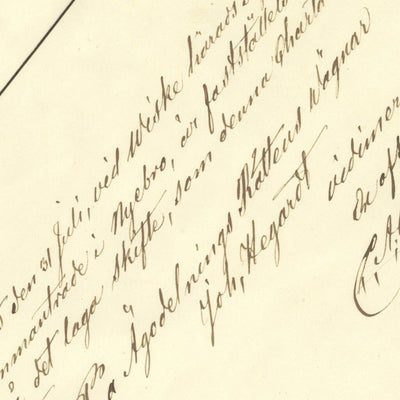 den 31 Juli, vid Wiske härads
i Nyebro, är faststäldt
det laga skifte, som denna charta
Ägodelnings Rättens wägnar
Joh, Hegardt
vidimer